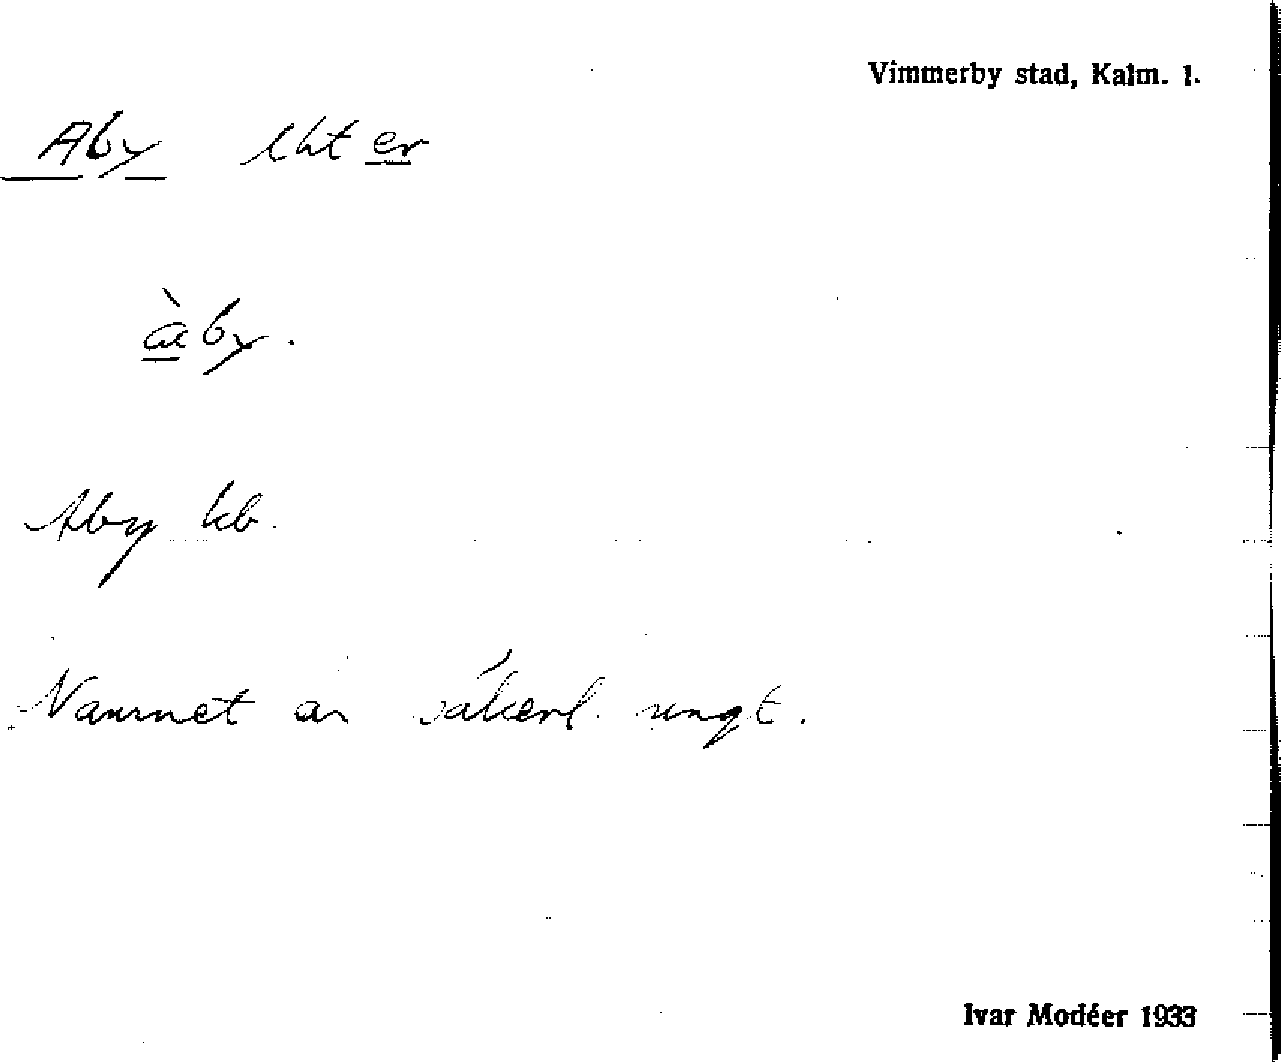 Vimmerby stad, Kalm. l.
Åby lht er
å̀by.
Åby kb.
Namnet är säkerl. ungt.
Ivar Modéer 1933